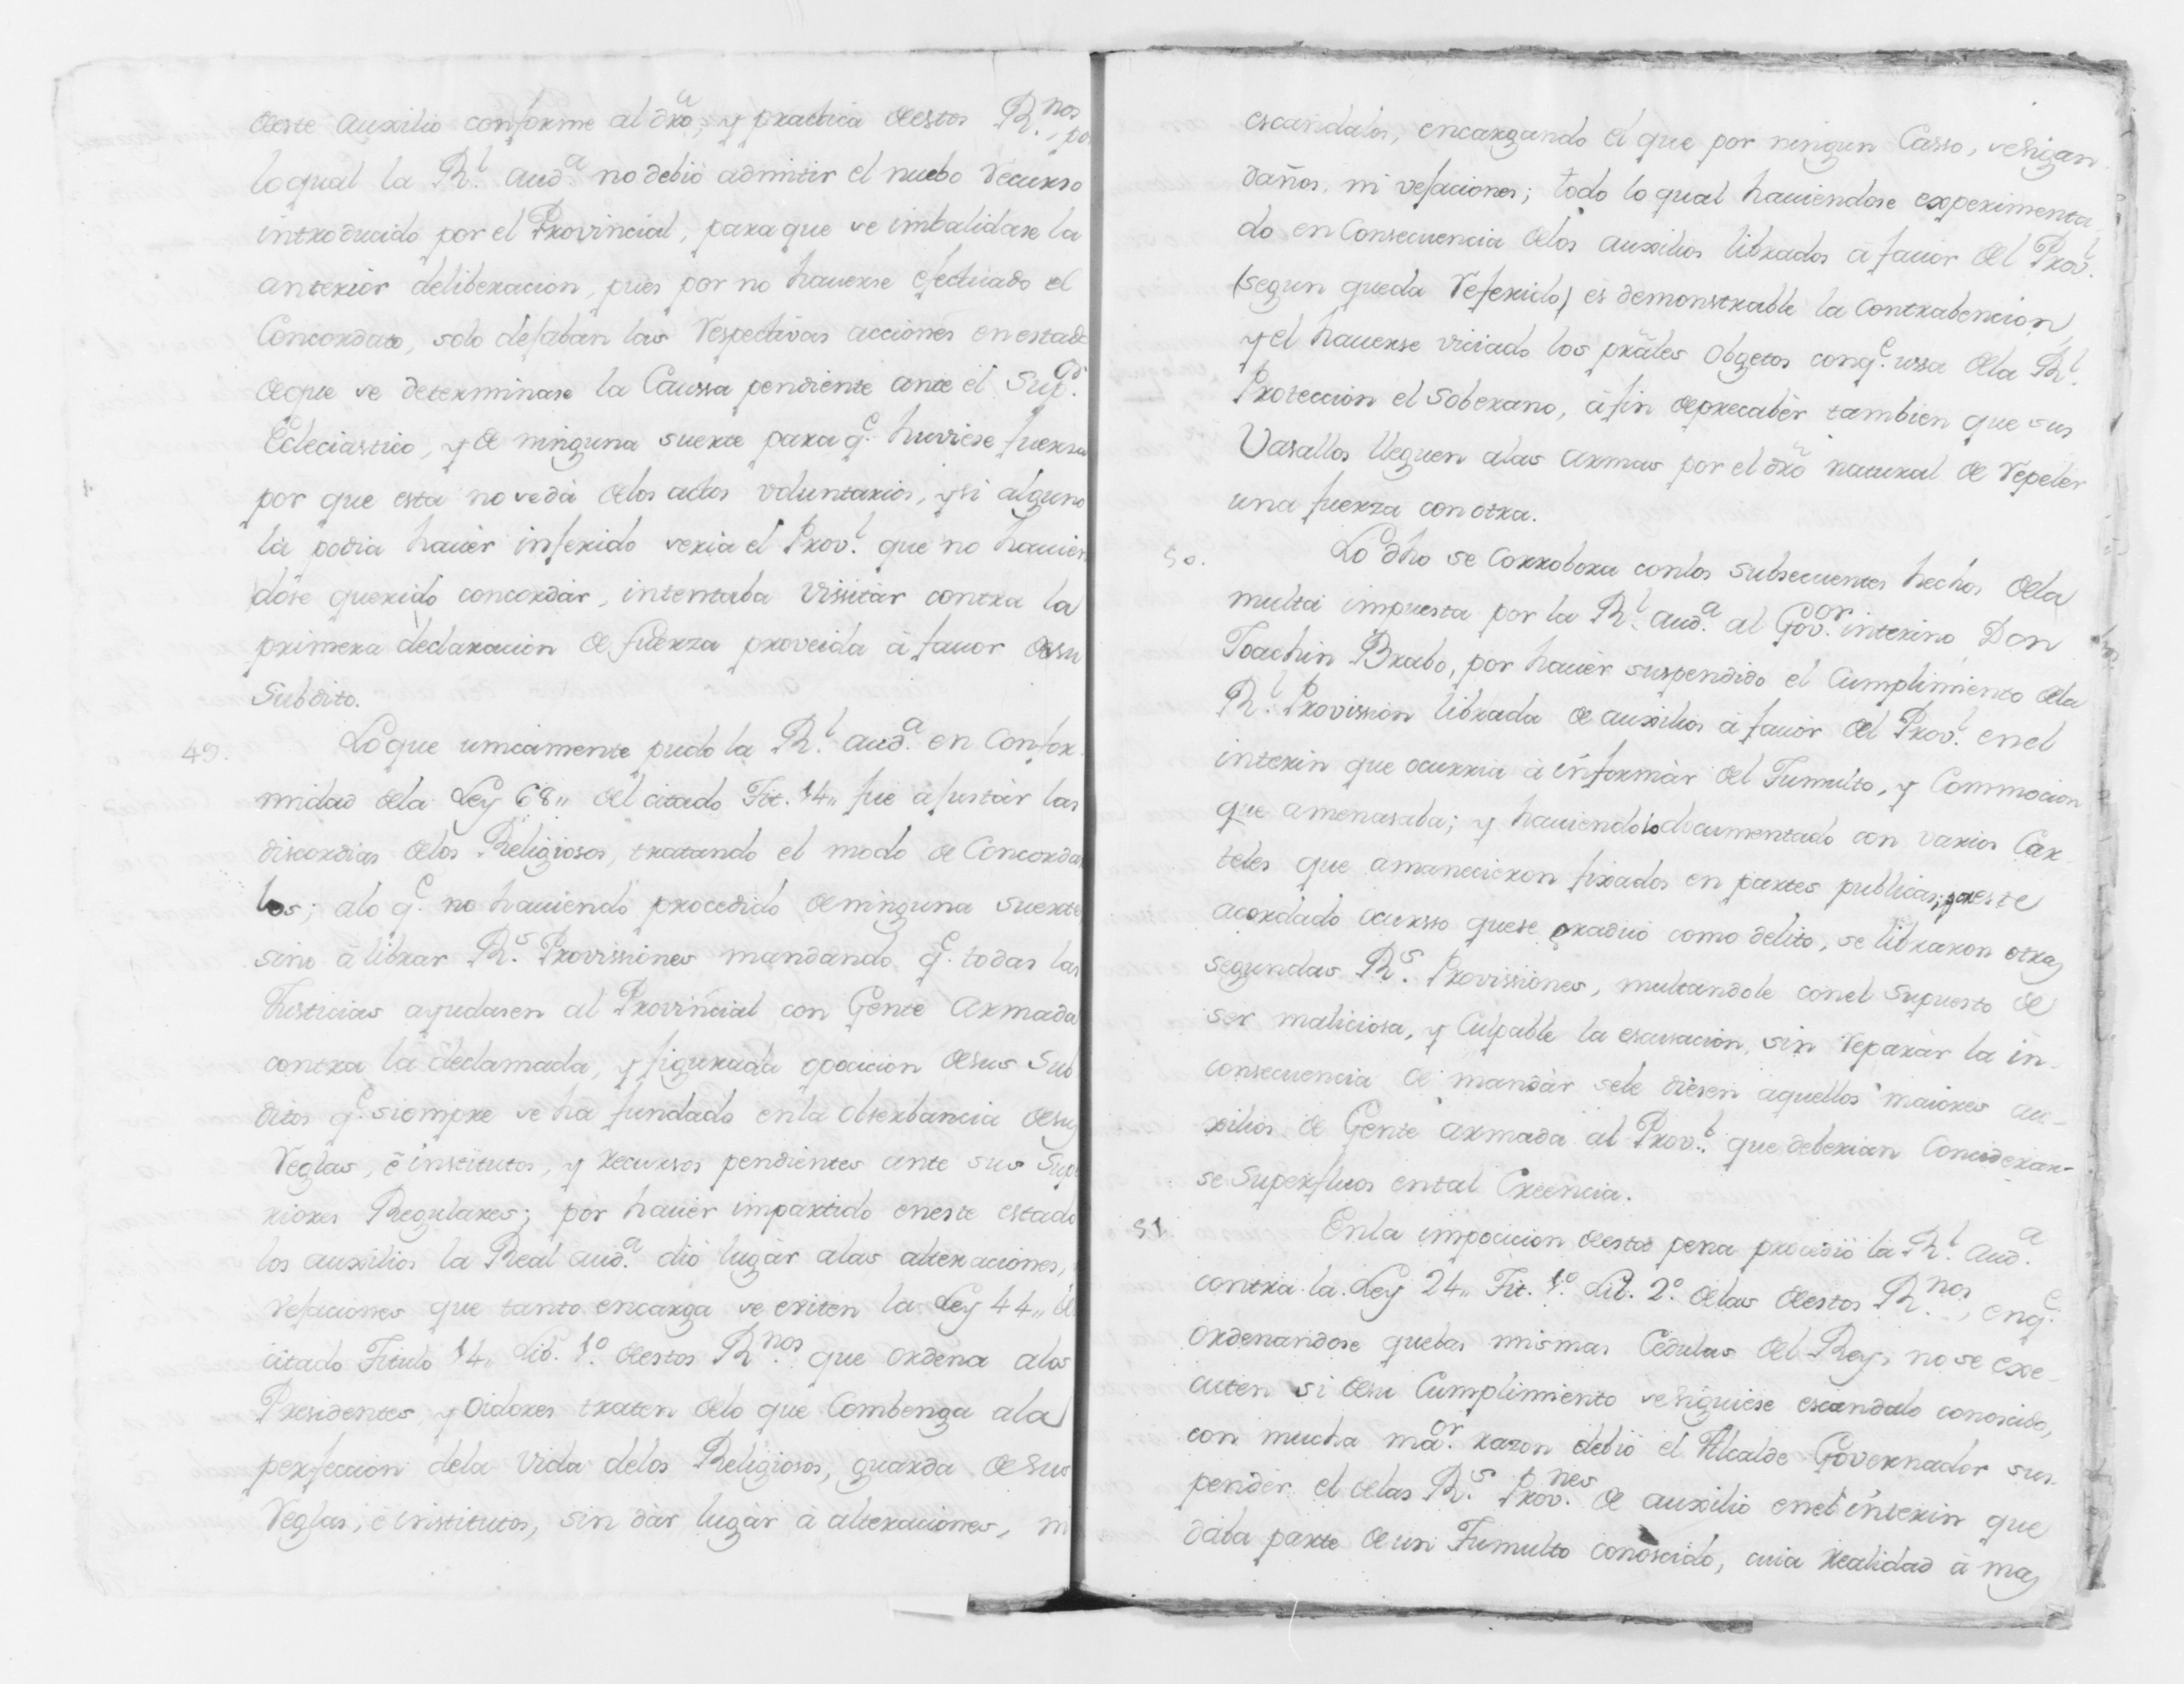 deeste auxilio conforme al dro, y practica deestos R.nos, po
loqual la R.l aud.a no debiò admitir el nuebo recurso
introducido por el Provincial, para que se imbalidase la
anterior deliberacion, pues por no hauerse efectuado el
Concordato, solo dejaban las respectivas acciones en estado
deque se determinase la Caussa pendiente ante el Sup.or
Ecleciastico, y de ninguna suerte para q.e huviese fuerza
por que esta no se dà delos actos voluntarios, y si alguno
la podia hauer inferido seria el Prov.l que no hauien
dose querido concordar, intentaba vissitar contra la
primera declaracion de fuerza proveida à fauor desu
Subdito.
49. Loque unicamente pudo la R.l aud.a en Confor
midad dela Ley 68,, del citado Tit. 14,, fue ajustàr las
discordias delos Religiosos, tratando el modo de Concordar
los; alo q.e no hauiendo procedido deninguna suerte
sino à librar R.s Provissiones mandando q.e todas las
Justicias ayudasen al Provincial con Gente Armada
contra la declamada, y figurada opocicion desus Sub
ditos q.e siempre se ha fundado enla obserbancia desus
Reglas, è institutos, y recursos pendientes ante sus Supe
riores Regulares; por hauèr impartido eneste estado
los auxilios la Real aud.a diò lugàr alas alteraciones,
vejaciones que tanto encarga se eviten la Ley 44,, del
citado Titulo 14,, Lib. 1.o deestos R.nos que ordena alos
Presidentes, y oidores traten delo que Combenga ala
perfeccion dela vida delos Religiosos, guarda desus
Reglas, è institutos, sin dàr lugàr à alteraciones, ni
escandalos, encargando el que por ningun Casso, resivan
daños, ni vejaciones; todo lo qual hauiendose experimenta
do en Consecuencia delos auxilios librados à fauor del Prov.l
(segun queda referido) es demonstrable la Contrabencion
y el hauerse viciado los prâles objetos conq.e ussa dela R.l
Proteccion el Soberano, à fin deprecabèr tambien que sus
Vasallos lleguen alas armas por el dro natural de repeler
una fuerza con otra.
50. Lo dho se corrobora conlos subsecuentes hechos dela
multa impuesta por la R.l aud.a al Gov.or interino Don
Joachin Brabo, por hauèr suspendido el Cumplimiento dela
R.l Provission librada de auxilios à fauòr del Prov.l enel
interin que ocurria à informàr del Tumulto, y Commocion
que amenasaba; y hauiendolo documentado con varios Car
teles que amanecieron fixados en partes publicas; por este
acordado ocursso quese graduò como delito, se libraron otras
segundas R.s Provissiones, multandole conel supuesto de
ser maliciosa, y Culpable la escusacion, sin reparàr la in
consecuencia de mandàr sele diesen aquellos maiores au-
xilios de Gente armada al Prov.l que deberian Conciderar-
se Superfluos ental Creencia.
51. Enla impocicion deesta pena procediò la R.l aud.a
contra la Ley 24,, Tit. 1.o Lib. 2.o delas deestos R.nos, enq.e
ordenandose quelas mismas Cedulas del Rey, no se exe
cuten si desu Cumplimiento se siguiese escandalo conoscido,
con mucha ma.or razon debiò el Alcalde Governador sus
pendèr el delas R.s Prov.nes de auxilio enel interin que
daba parte de un Tumulto conoscido, cuia realidad à mas